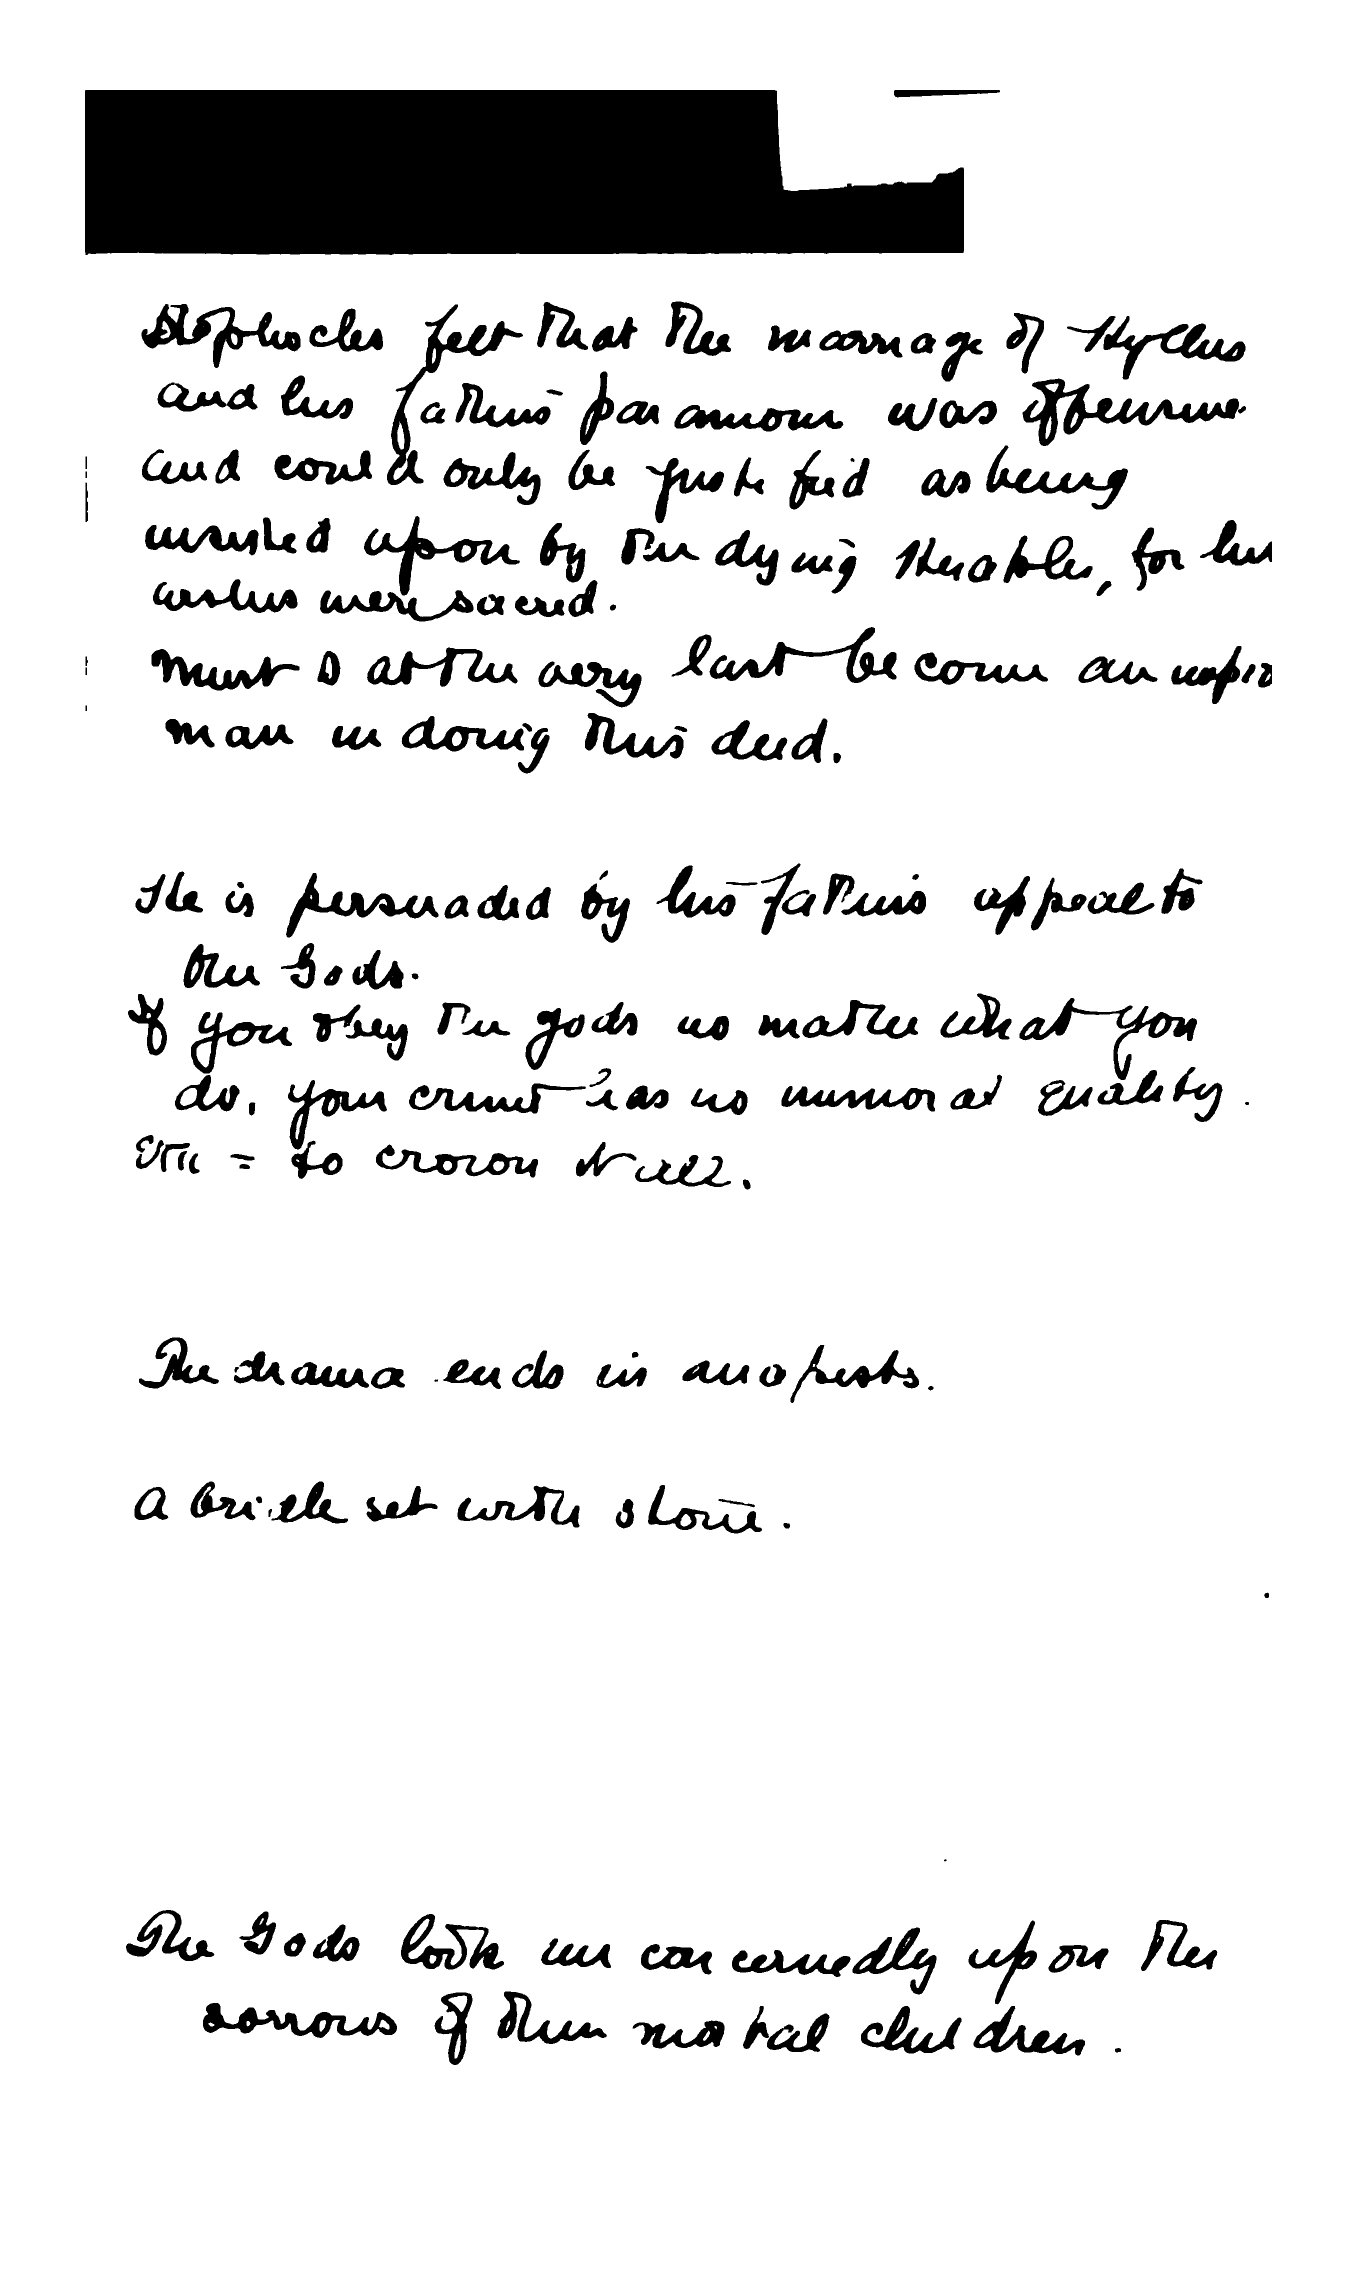 Sophocles felt that the marriage of Hyllus
and his father's paramour was offensive
and could only be justified as being
insisted upon by the dying Herakles, for his
wishes were sacred.
Must I at the very last become an
man in doing this deed.
He is persuaded by his father's appeal to
the Gods.
If you obey the gods no matter what you
do, your crime has no immoral quality.
ἐπι = to crown it all.
The drama ends in anapests.
A bridle set with stone.
The Gods look unconcernedly upon the
sorrows of their mortal children.